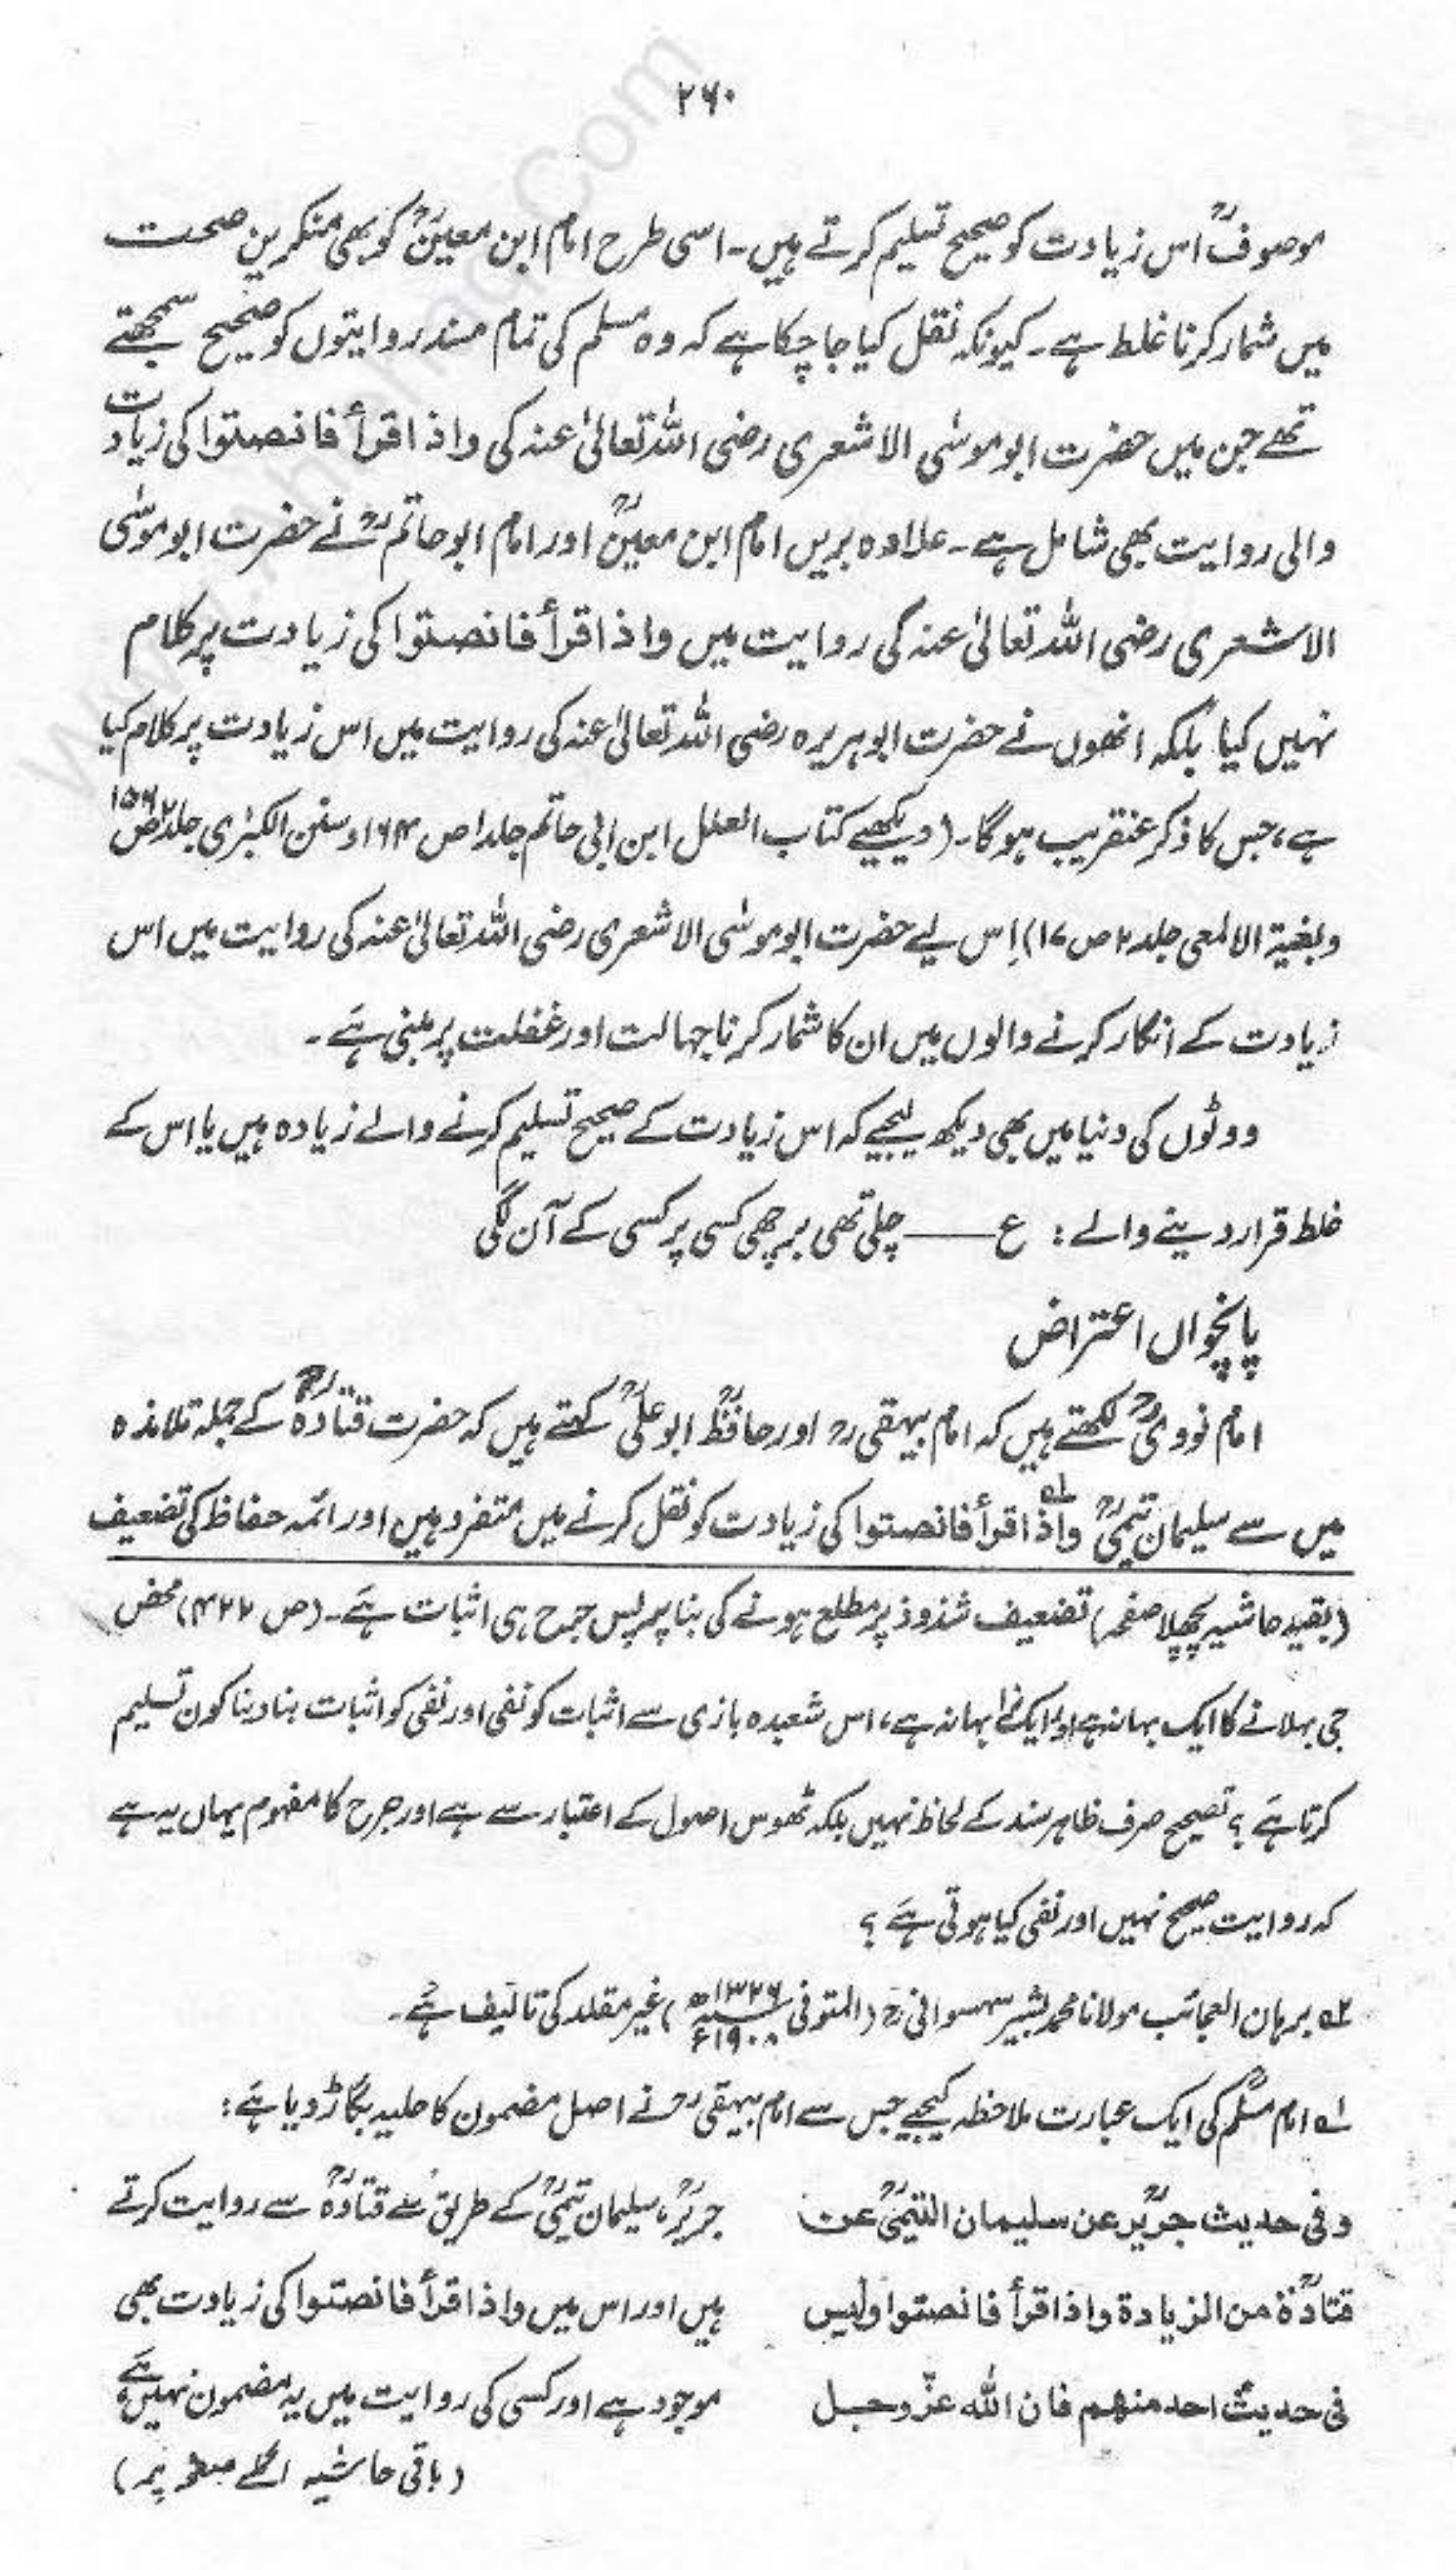 ۲۶۰
موصوفؒ اس زیادت کو صحیح تسلیم کرتے ہیں۔ اسی طرح امام ابن معینؒ کو بھی منکرین صحت
میں شمار کرنا غلط ہے۔ کیونکہ نقل کیا جا چکا ہے کہ وہ مسلم کی تمام مسند روایتوں کو صحیح سمجھتے
تھے جن میں حضرت ابو موسٰی الاشعری رضی اللہ تعالیٰ عنہ کی واذا قرأ فانصتوا کی زیادت
والی روایت بھی شامل ہے۔ علاوہ بریں امام ابن معینؒ اور امام ابو حاتمؒ نے حضرت ابو موسٰی
الاشعری رضی اللہ تعالیٰ عنہ کی روایت میں واذا قرأ فانصتوا کی زیادت پر کلام
نہیں کیا بلکہ انھوں نے حضرت ابو ہریرہ رضی اللہ تعالیٰ عنہ کی روایت میں اس زیادت پر کلام کیا
ہے، جس کا ذکر عنقریب ہو گا۔ (دیکھیے کتاب العلل ابن ابی حاتم جلد ۱ ص ۱۶۴، و سنن الکبریٰ جلد ۲ ص ۱۵۶
وبغیۃ الالمعی جلد ۲ ص ۱۷) اِس لیے حضرت ابو موسٰی الاشعری رضی اللہ تعالیٰ عنہ کی روایت میں اس
زیادت کے انکار کرنے والوں میں ان کا شمار کرنا جہالت اور غفلت پر مبنی ہَے۔
ووٹوں کی دنیا میں بھی دیکھ لیجیے کہ اس زیادت کے صحیح تسلیم کرنے والے زیادہ ہیں یا اس کے
غلط قرار دینے والے : ع —— چلی تھی برچھی کسی پر کسی کے آن لگی
پانچواں اعتراض
امام نوویؒ لکھتے ہیں کہ امام بیہقیؒ اور حافظؒ ابو علیؒ کہتے ہیں کہ حضرت قتادہؒ کے جملہ تلامذہ
میں سے سلیمان تیمیؒ واذا ۱ قرأ فانصتوا کی زیادت کو نقل کرنے میں متفرد ہیں اور ائمہ حفاظ کی تضعیف
(بقیہ حاشیہ پچھلا صفحہ) تضعیف شذوذ پر مطلع ہونے کی بنا پر پس جرح ہی اثبات ہَے۔ (ص ۴۲۲) محض
جی بہلانے کا ایک بہانہ ہے اور ایک بہانہ ہے، اس شعبدہ بازی سے اثبات کو نفی اور نفی کو اثبات بنا دینا کون تسلیم
کرتا ہَے ؟ تصحیح صرف ظاہر سند کے لحاظ نہیں بلکہ ٹھوس اصول کے اعتبار سے ہے اور جرح کا مفہوم یہاں یہ ہے
کہ روایت صحیح نہیں اور نفی کیا ہوتی ہَے ؟
۲؎ برہان العجائب مولانا محمد بشیر سہسوانیؒ (المتوفی ۱۳۲۶ھ ۱۹۰۸ء) غیر مقلد کی تالیف ہَے۔
۱؎ امام مسلمؒ کی ایک عبارت ملاحظہ کیجیے جس سے امام بیہقیؒ نے اصل مضمون کا حلیہ بگاڑ دیا ہَے:
وفی حدیث جریرؒ عن سلیمان التیمیؒ عن
قتادۃؒ من الزیادۃ واذا قرأ فانصتوا ولیس
فی حدیث احد منھم فان اللہ عزّ وجل
جریرؒ، سلیمان تیمیؒ کے طریق سے قتادہؒ سے روایت کرتے
ہیں اور اس میں واذا قرأ فانصتوا کی زیادت بھی
موجود ہے اور کسی کی روایت میں یہ مضمون نہیں ہَے
(باقی حاشیہ اگلے صفحہ پر)